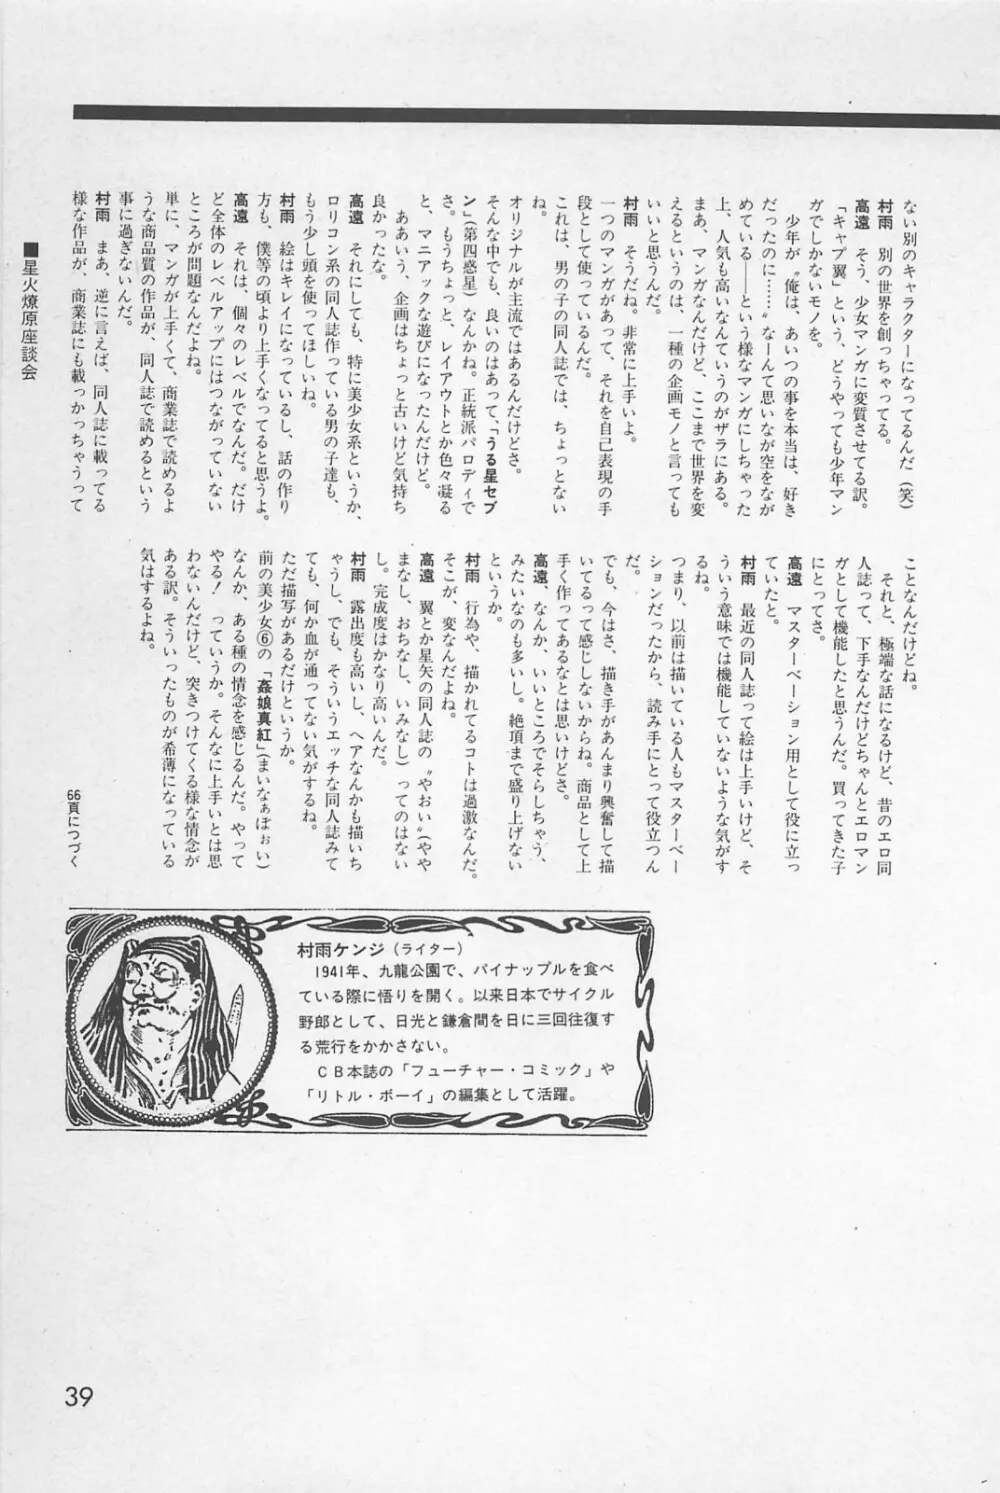 ない別のキャラクターになってるんだ（笑）
村雨　別の世界を創っちゃってる。
高遠　そう、少女マンガに変質させてる訳。
「キャプ翼」という、どうやっても少年マン
ガでしかないモノを。
　少年が〝俺は、あいつの事を本当は、好き
だったのに……〟なーんて思いながら空をなが
めている――という様なマンガにしちゃった
上、人気も高いなんていうのがザラにある。
まあ、マンガなんだけど、ここまで世界を変
えるというのは、一種の企画モノと言っても
いいと思うんだ。
村雨　そうだね。非常に上手いよ。
一つのマンガがあって、それを自己表現の手
段として使っているんだ。
これは、男の子の同人誌では、ちょっとない
ね。
オリジナルが主流ではあるんだけどさ。
そんな中でも、良いのはあって、「うる星セブ
ン」（第四惑星）なんかね。正統派パロディで
さ。もうちょっと、レイアウトとか色々凝る
と、マニアックな遊びになったんだけど。
　ああいう、企画はちょっと古いけど気持ち
良かったな。
高遠　それにしても、特に美少女系というか、
ロリコン系の同人誌作っている男の子達も、
もう少し頭を使ってほしいね。
村雨　絵はキレイになっているし、話の作り
方も、僕等の頃より上手くなってると思うよ。
高遠　それは、個々のレベルでなんだ。だけ
ど全体のレベルアップにはつながっていない
ところが問題なんだよね。
単に、マンガが上手くて、商業誌で読めるよ
うな商品質の作品が、同人誌で読めるという
事に過ぎないんだ。
村雨　まあ、逆に言えば、同人誌に載ってる
様な作品が、商業誌にも載っかっちゃうって
■星火燎原座談会
ことなんだけどね。
　それと、極端な話になるけど、昔のエロ同
人誌って、下手なんだけどちゃんとエロマン
ガとして機能したと思うんだ。買ってきた子
にとってさ。
高遠　マスターベーション用として役に立っ
ていたと。
村雨　最近の同人誌って絵は上手いけど、そ
ういう意味では機能していないような気がす
るね。
つまり、以前は描いている人もマスターベー
ションだったから、読み手にとって役立つん
だ。
でも、今はさ、描き手があんまり興奮して描
いてるって感じしないからね。商品として上
手く作ってあるなとは思いけどさ。
高遠、なんか、いいところでそらしちゃう、
みたいなのも多いし。絶頂まで盛り上げない
というか。
村雨　行為や、描かれてるコトは過激なんだ。
そこが、変なんだよね。
高遠　翼とか星矢の同人誌の〝やおい〟（やや
まなし、おちなし、いみなし）ってのはない
し。完成度はかなり高いんだ。
村雨　露出度も高いし、ヘアなんかも描いち
ゃうし、でも、そういうエッチな同人誌みて
ても、何か血が通ってない気がするね。
ただ描写があるだけというか。
前の美少女⑥の「姦娘真紅」（まいなぁぼぉい）
なんか、ある種の情念を感じるんだ。やって
やる！　っていうか。そんなに上手いとは思
わないんだけど、突きつけてくる様な情念が
ある訳。そういったものが希薄になっている
気はするよね。
66頁につづく
村雨ケンジ（ライター）
　1941年、九龍公園で、パイナップルを食べ
ている際に悟りを開く。以来日本でサイクル
野郎として、日光と鎌倉間を日に三回往復す
る荒行をかかさない。
　ＣＢ本誌の「フューチャー・コミック」や
「リトル・ボーイ」の編集として活躍。
39